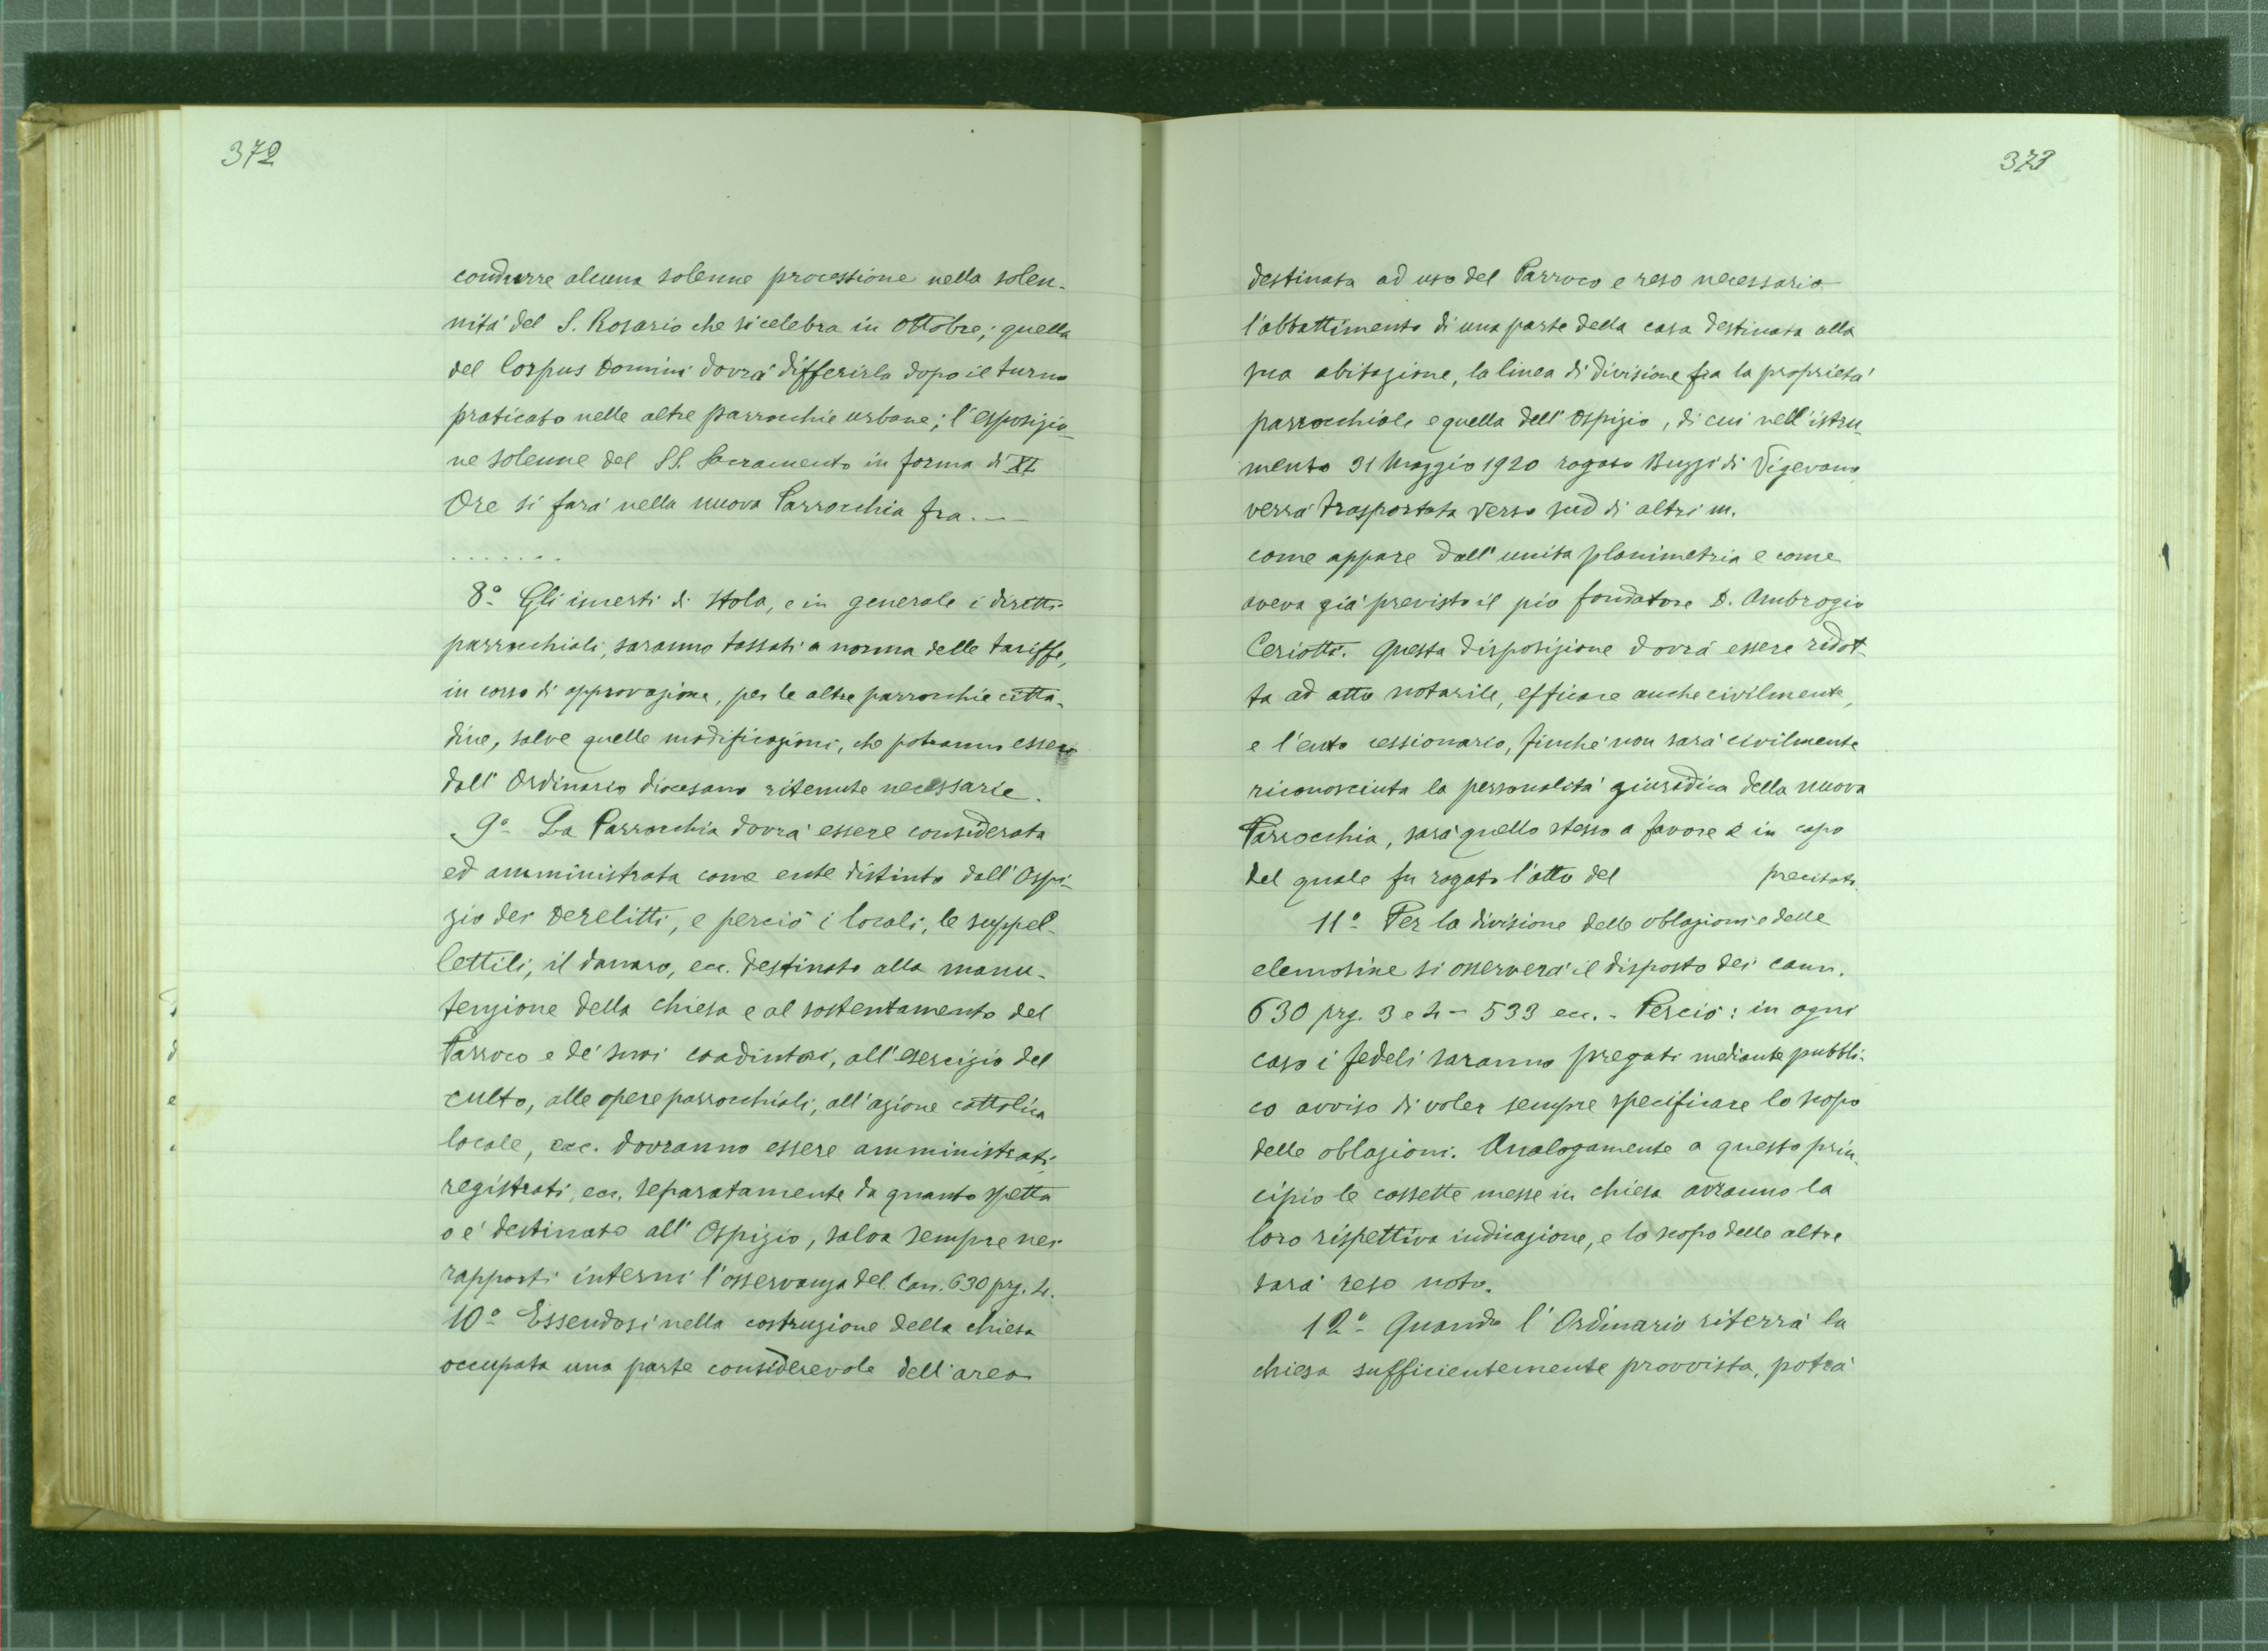 372
condurre alcuna solenne processione nella solen-
nità del S. Rosario che si celebra in Ottobre; quella
del Corpus Domini dovrà differirla dopo il turno
praticato nelle altre parrocchie urbane; l'esposizio-
ne solenne del SS. Sacramento in forma di XL
Ore si farà nella nuova Parrocchia fra.—
. . . . . . .
8º- Gli incerti di Stola, e in generale i diritti
parrocchiali, saranno tassati a norma delle tariffe,
in corso di approvazione, per le altre parrocchie citta-
dine, salve quelle modificazioni, che potranno essere
dall'Ordinario diocesano ritenute necessarie.
9º- La Parrocchia dovrà essere considerata
ed amministrata come ente distinto dall'Ospi-
zio dei Derelitti, e perciò i locali, le suppel-
lettili, il danaro, ecc. destinato alla manu-
tenzione della chiesa e al sostentamento del
Parroco e de' suoi coadiutori, all'esercizio del
culto, alle opere parrocchiali, all'azione cattolica
locale, ecc. dovranno essere amministrati,
registrati, ecc. separatamente da quanto spetta
o è destinato all'Ospizio, salva sempre nei
rapporti interni l'osservanza del Can. 630 prg. 4.
10º- Essendosi nella costruzione della chiesa
occupata una parte considerevole dell'area
373
destinata ad uso del Parroco e reso necessario
l'abbattimento di una parte della casa destinata alla
sua abitazione, la linea di divisione fra la proprietà
parrocchiale e quella dell'Ospizio, di cui nell'istru-
mento 31 Maggio 1920 rogato Buzzi di Vigevano,
verrà trasportata verso sud di altri m.
come appare dall'unita planimetria e come
aveva già previsto il pio fondatore D. Ambrogio
Ceriotti. Questa disposizione dovrà essere ridot-
ta ad atto notarile, efficace anche civilmente,
e l'ente cessionario, finchè non sarà civilmente
riconosciuta la personalità giuridica della nuova
Parrocchia, sarà quello stesso a favore e in capo
del quale fu rogato l'atto del precitato.
11º- Per la divisione delle oblazioni e delle
elemosine si osserverà il disposto dei cann.
630 prg. 3 e 4 - 533 ecc. - Perciò: in ogni
caso i fedeli saranno pregati mediante pubbli-
co avviso di voler sempre specificare lo scopo
delle oblazioni. Analogamente a questo prin-
cipio le cassette messe in chiesa avranno la
loro rispettiva indicazione, e lo scopo delle altre
sarà reso noto.
12º- Quando l'Ordinario riterrà la
chiesa sufficientemente provvista, potrà